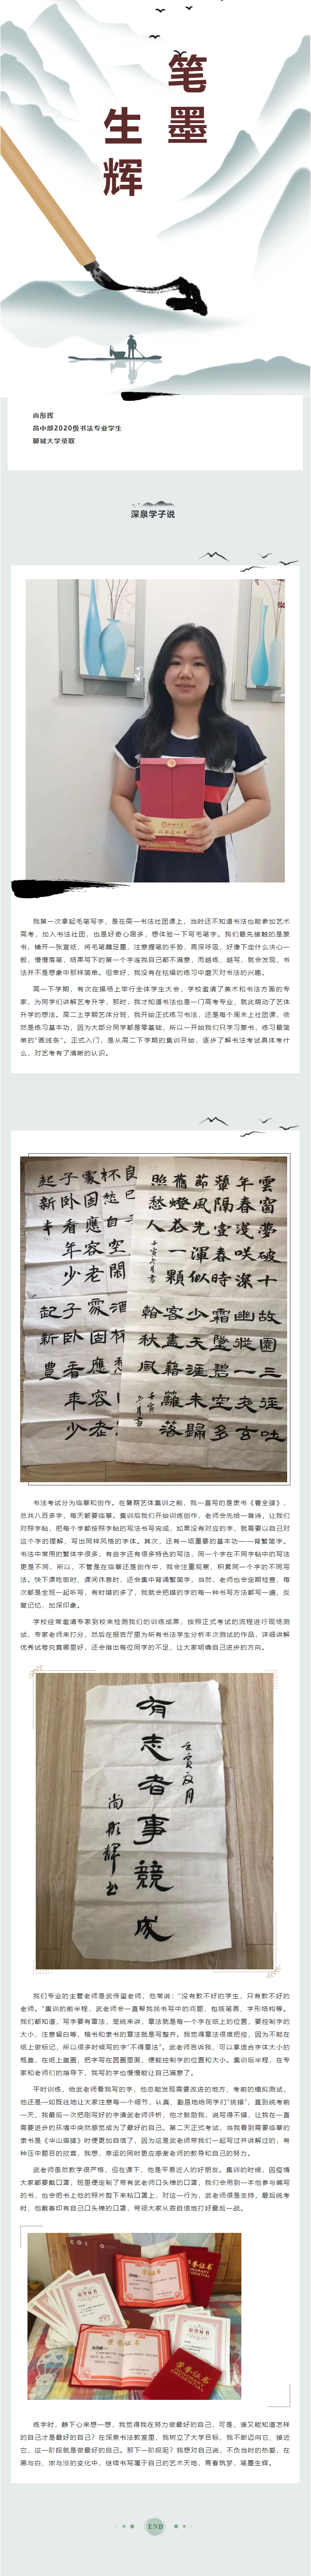 笔墨
生辉
尚彤辉
高中部2020级书法专业学生
聊城大学录取
深泉学子说
我第一次拿起毛笔写字，是在高一书法社团课上，当时还不知道书法也能参加艺术
高考，加入书法社团，也是好奇心居多，想体验一下写毛笔字。我们最先接触的是篆
书，铺开一张宣纸，将毛笔蘸足墨，注意握笔的手势，再深呼吸，好像下定什么决心一
般，慢慢落笔，结果写下的第一个字连我自己都不满意，而越练、越写，就会发现，书
法并不是想象中那样简单。但幸好，我没有在枯燥的练习中磨灭对书法的兴趣。
高一下学期，有次在操场上举行全体学生大会，学校邀请了美术和书法方面的专
家，为同学们讲解艺考升学，那时，我才知道书法也是一门高考专业，就此萌动了艺体
升学的想法。高二上学期艺体分班，我开始正式练习书法，还是每个周末上社团课，依
然是练习基本功，因为大部分同学都是零基础，所以一开始我们只学习篆书，练习最简
单的“画线条”。正式入门，是从高二下学期的集训开始，逐步了解书法考试具体考什
么，对艺考有了清晰的认识。
书法考试分为临摹和创作。在暑期艺体集训之前，我一直写的是隶书《曹全碑》，
总共八百多字，每天都要临摹。集训后我们开始训练创作，老师会先给一首诗，让我们
对照字帖，把每个字都按照字帖的写法书写完成，如果没有对应的字，就需要以自己对
这个字的理解，写出同样风格的字体。其次，还有一项重要的基本功——背繁简字。
书法中常用的繁体字很多，有些字还有很多特色的写法，同一个字在不同字帖中的写法
更是不同，所以，不管是在临摹还是创作中，我会注重观察、积累同一个字的不同写
法。快下课吃饭时，课间休息时，还会集中背诵繁简字，当然，老师也会定期检查，每
次都是全班一起听写，有时错的多了，我就会把错的字的每一种书写方法都写一遍，反
复记忆，加深印象。
学校经常邀请专家到校来检测我们的训练成果，按照正式考试的流程进行现场测
试，专家老师来打分，然后在报告厅里为所有书法学生分析本次测试的作品，详细讲解
优秀试卷究竟哪里好，还会指出每位同学的不足，让大家明确自己进步的方向。
有志者事竟成
壬寅夏月
尚彤辉书
我们专业的主管老师是武传玺老师，他常说：“没有教不好的学生，只有教不好的
老师。”集训的前半程，武老师会一直帮我找书写中的问题，包括笔画、字形结构等。
我们都知道，写字要有章法，笼统来讲，章法就是每一个字在纸上的位置，要控制字的
大小，注意留白等，楷书和隶书的章法就是写整齐。我觉得章法很难把控，因为不能在
纸上做标记，所以很多时候写的字“不得章法”。武老师告诉我，可以拿适合字体大小的
瓶盖，在纸上盖圈，把字写在圆圈里面，便能控制字的位置和大小。集训后半程，在专
家和老师们的指导下，我写的字也慢慢能让自己满意了。
平时训练，给武老师看我写的字，他总能发现需要改进的地方，考前的模拟测试，
他还是一如既往地让大家注意每一个细节，认真、勤恳地给同学们“挑错”，直到统考前
一天，我最后一次把刚写好的字请武老师评析，他才鼓励我，说写得不错，让我在一直
需要进步的环境中突然感觉成为了最好的自己。第二天正式考试，当我看到需要临摹的
隶书是《华山庙碑》时便更加自信了，因为这是武老师带我们一起写过并讲解过的，有
种压中题目的欣喜，我想，幸运的同时更应感谢老师的教导和自己的努力。
武老师虽然教学很严格，但在课下，他是平易近人的好朋友。集训的时候，因疫情
大家都要戴口罩，班里便定制了带有武老师口头禅的口罩，我们会用到一本他参与编写
的书，也会把书上他的照片剪下来粘口罩上，对这一行为，武老师很是支持，最后统考
时，他戴着印有自己口头禅的口罩，带领大家从容自信地打好最后一战。
荣誉证书
练字时，静下心来想一想，我觉得我在努力做最好的自己，可是，谁又能知道怎样
的自己才是最好的自己？在深泉书法教室里，我树立了大学目标，我不断迈向它、接近
它，这一阶段就是做最好的自己。那下一阶段呢？我想对自己说，不负当时的热爱，在
黑与白、浓与淡的变化中，继续书写属于自己的艺术天地，青春筑梦，笔墨生辉。
END